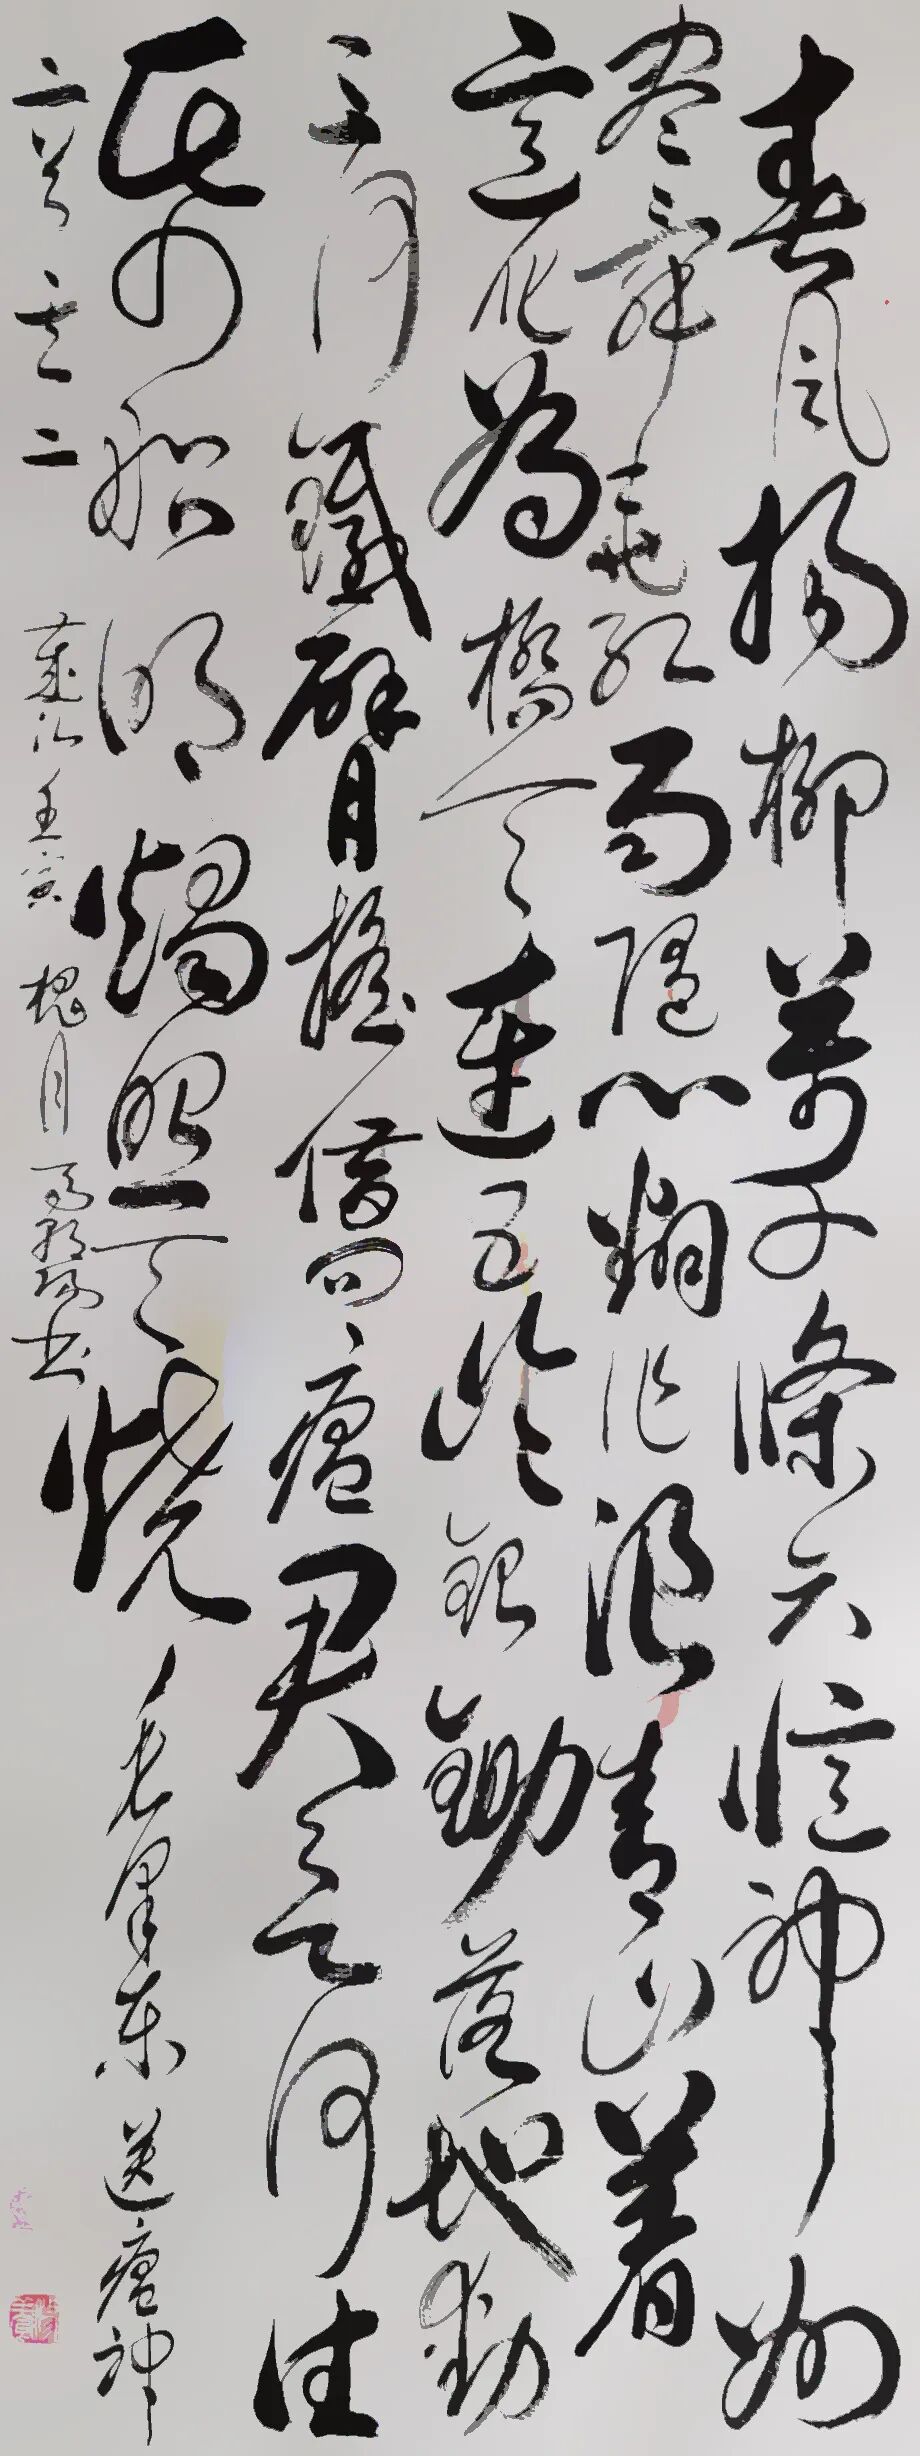 春风杨柳萬千條六億神州
盡舜尧红雨随心翻作浪青山着
意化为橋天连五岭银锄落地動
三河鐵臂摇借问瘟君欲何往
纸船明燭照天烧 毛泽东 送瘟神
二首其二 歲次壬寅 槐月 书